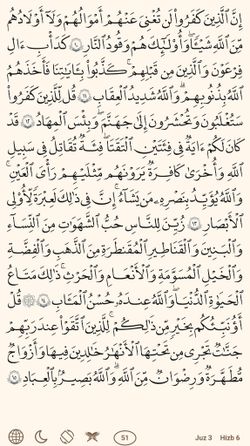 إِنَّ ٱلَّذِينَ كَفَرُوا۟ لَن تُغْنِىَ عَنْهُمْ أَمْوَٰلُهُمْ وَلَآ أَوْلَـٰدُهُم
مِّنَ ٱللَّهِ شَيْـًٔا ۖ وَأُو۟لَـٰٓئِكَ هُمْ وَقُودُ ٱلنَّارِ ١٠ كَدَأْبِ ءَالِ
فِرْعَوْنَ وَٱلَّذِينَ مِن قَبْلِهِمْ ۚ كَذَّبُوا۟ بِـَٔايَـٰتِنَا فَأَخَذَهُمُ
ٱللَّهُ بِذُنُوبِهِمْ ۗ وَٱللَّهُ شَدِيدُ ٱلْعِقَابِ ١١ قُل لِّلَّذِينَ كَفَرُوا۟
سَتُغْلَبُونَ وَتُحْشَرُونَ إِلَىٰ جَهَنَّمَ ۚ وَبِئْسَ ٱلْمِهَادُ ١٢ قَدْ
كَانَ لَكُمْ ءَايَةٌ فِى فِئَتَيْنِ ٱلْتَقَتَا ۖ فِئَةٌ تُقَـٰتِلُ فِى سَبِيلِ
ٱللَّهِ وَأُخْرَىٰ كَافِرَةٌ يَرَوْنَهُم مِّثْلَيْهِمْ رَأْىَ ٱلْعَيْنِ ۚ
وَٱللَّهُ يُؤَيِّدُ بِنَصْرِهِۦ مَن يَشَآءُ ۗ إِنَّ فِى ذَٰلِكَ لَعِبْرَةً لِّأُو۟لِى
ٱلْأَبْصَـٰرِ ١٣ زُيِّنَ لِلنَّاسِ حُبُّ ٱلشَّهَوَٰتِ مِنَ ٱلنِّسَآءِ
وَٱلْبَنِينَ وَٱلْقَنَـٰطِيرِ ٱلْمُقَنطَرَةِ مِنَ ٱلذَّهَبِ وَٱلْفِضَّةِ
وَٱلْخَيْلِ ٱلْمُسَوَّمَةِ وَٱلْأَنْعَـٰمِ وَٱلْحَرْثِ ۗ ذَٰلِكَ مَتَـٰعُ
ٱلْحَيَوٰةِ ٱلدُّنْيَا ۖ وَٱللَّهُ عِندَهُۥ حُسْنُ ٱلْمَـَٔابِ ١٤ ۞ قُلْ
أَؤُنَبِّئُكُم بِخَيْرٍ مِّن ذَٰلِكُمْ ۚ لِلَّذِينَ ٱتَّقَوْا۟ عِندَ رَبِّهِمْ
جَنَّـٰتٌ تَجْرِى مِن تَحْتِهَا ٱلْأَنْهَـٰرُ خَـٰلِدِينَ فِيهَا وَأَزْوَٰجٌ
مُّطَهَّرَةٌ وَرِضْوَٰنٌ مِّنَ ٱللَّهِ ۗ وَٱللَّهُ بَصِيرٌۢ بِٱلْعِبَادِ ١٥
51 Juz 3 Hizb 6